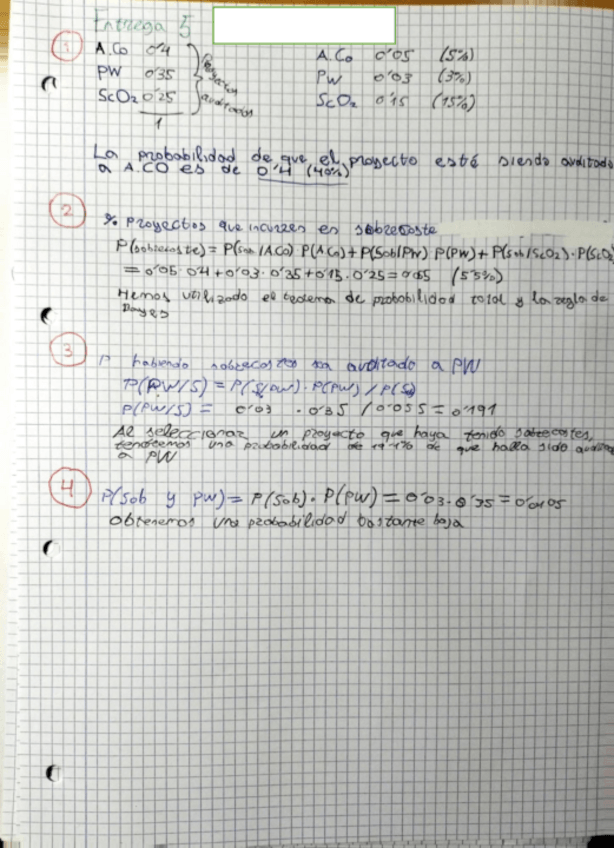 Entrega 5
1 A.Co 0'4 A.Co 0'05 (5%)
PW 0'35 proyectos auditados PW 0'03 (3%)
ScO2 0'25 ScO2 0'15 (15%)
1
La probabilidad de que el proyecto esté siendo auditado
a A.CO es de 0'4 (40%)
2 % Proyectos que incurren en sobrecoste
P(sobrecoste)= P(sob/ACo) P(ACo)+P(Sob/PW) P(PW)+P(sob/ScO2)·P(ScO2
= 0'05·0'4+0'03·0'35+0'15·0'25=0'055 (5'5%)
Hemos utilizado el teorema de probabilidad total y la regla de
Bayes
3 P habiendo sobrecostes sea auditado a PW
P(PW/S) = P(S/PW)·P(PW)/P(S)
P(PW/S) = 0'03 ·0'35 /0'055=0'191
Al seleccionar un proyecto que haya tenido sobrecostes,
tendremos una probabilidad de 19'1% de que halla sido
a PW
4 P(sob y PW)= P(sob)·P(PW)=0'03·0'35=0'0105
obtenemos una probabilidad bastante baja